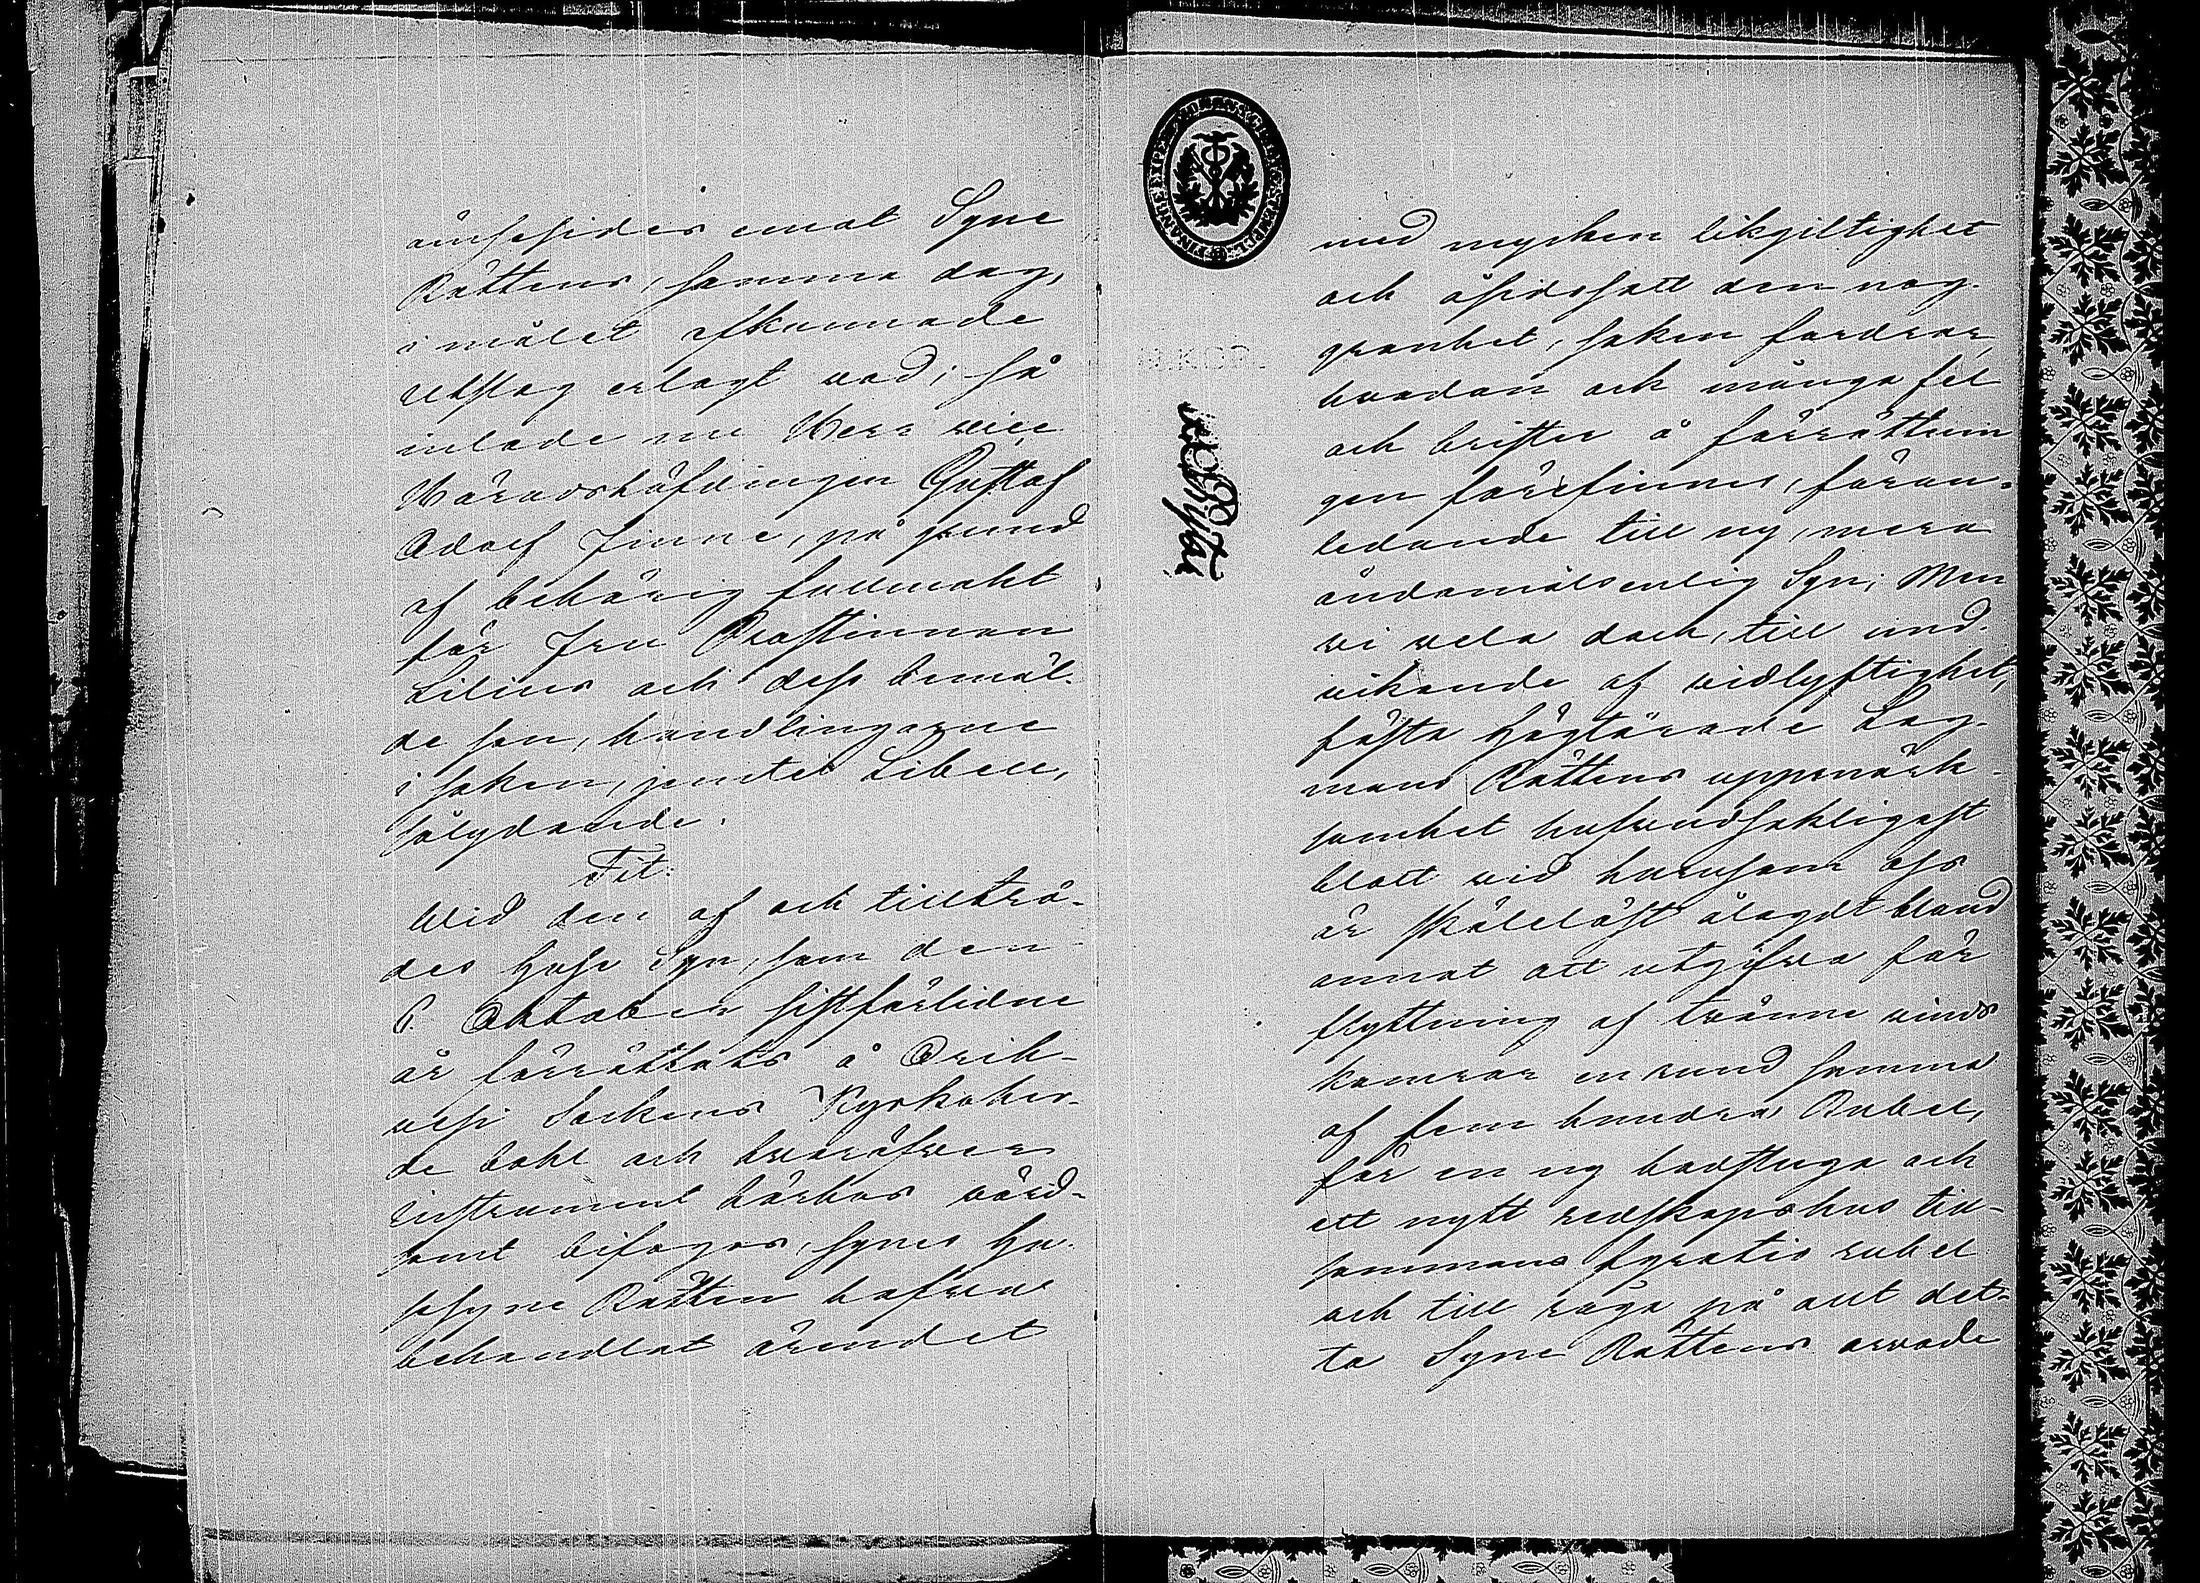 ömsesides emot Syne
Rättens, samma dag,
i målet afkunnade
Utslag erlagt vad; så
inlade nu Herr vice
Häradshöfdingen Gustaf
Adolf Finne, på grund
af behörig fullmakt
för Fru Prostinnan
Lilius och dess bemäl-
de son, handlingarne
i saken, jemte Libell,
sålydande.
Tit:
Wid den af och tillträ-
des Huse Syn, som den
6. Oktober sistförlidne
år förrättats å Orih-
vesi Sockens Kyrkoher-
de bohl och hvaröfver
instrument härhos vörd-
samt bifogas, synes Hu-
sesyne Rätten hafva
behandlat ärendet
med mycken likgiltighet
och åsidosatt den nog-
granhet, saken fordrar,
hvadan och många fel
och brister å förrättnin
gen förefinnes, föran-
ledande till ny, mera
ändamålsenlig Syn; Men
vi vela dock, till und-
vikande af vidlyftighet,
fästa Högtärade Lag-
mans Rättens uppmärk-
samhet hufvudsakligast
blott vid hurusom oss
är skälelöst ålagdt bland
annat att utgifva för
flyttning af tvänne vinds
kamrar en rund summa
af fem hundra Rubel,
för en ny badstuga och
ett nytt redskapshus till-
sammans fyratio rubel
och till råga på allt det-
ta Syne Rättens arvode